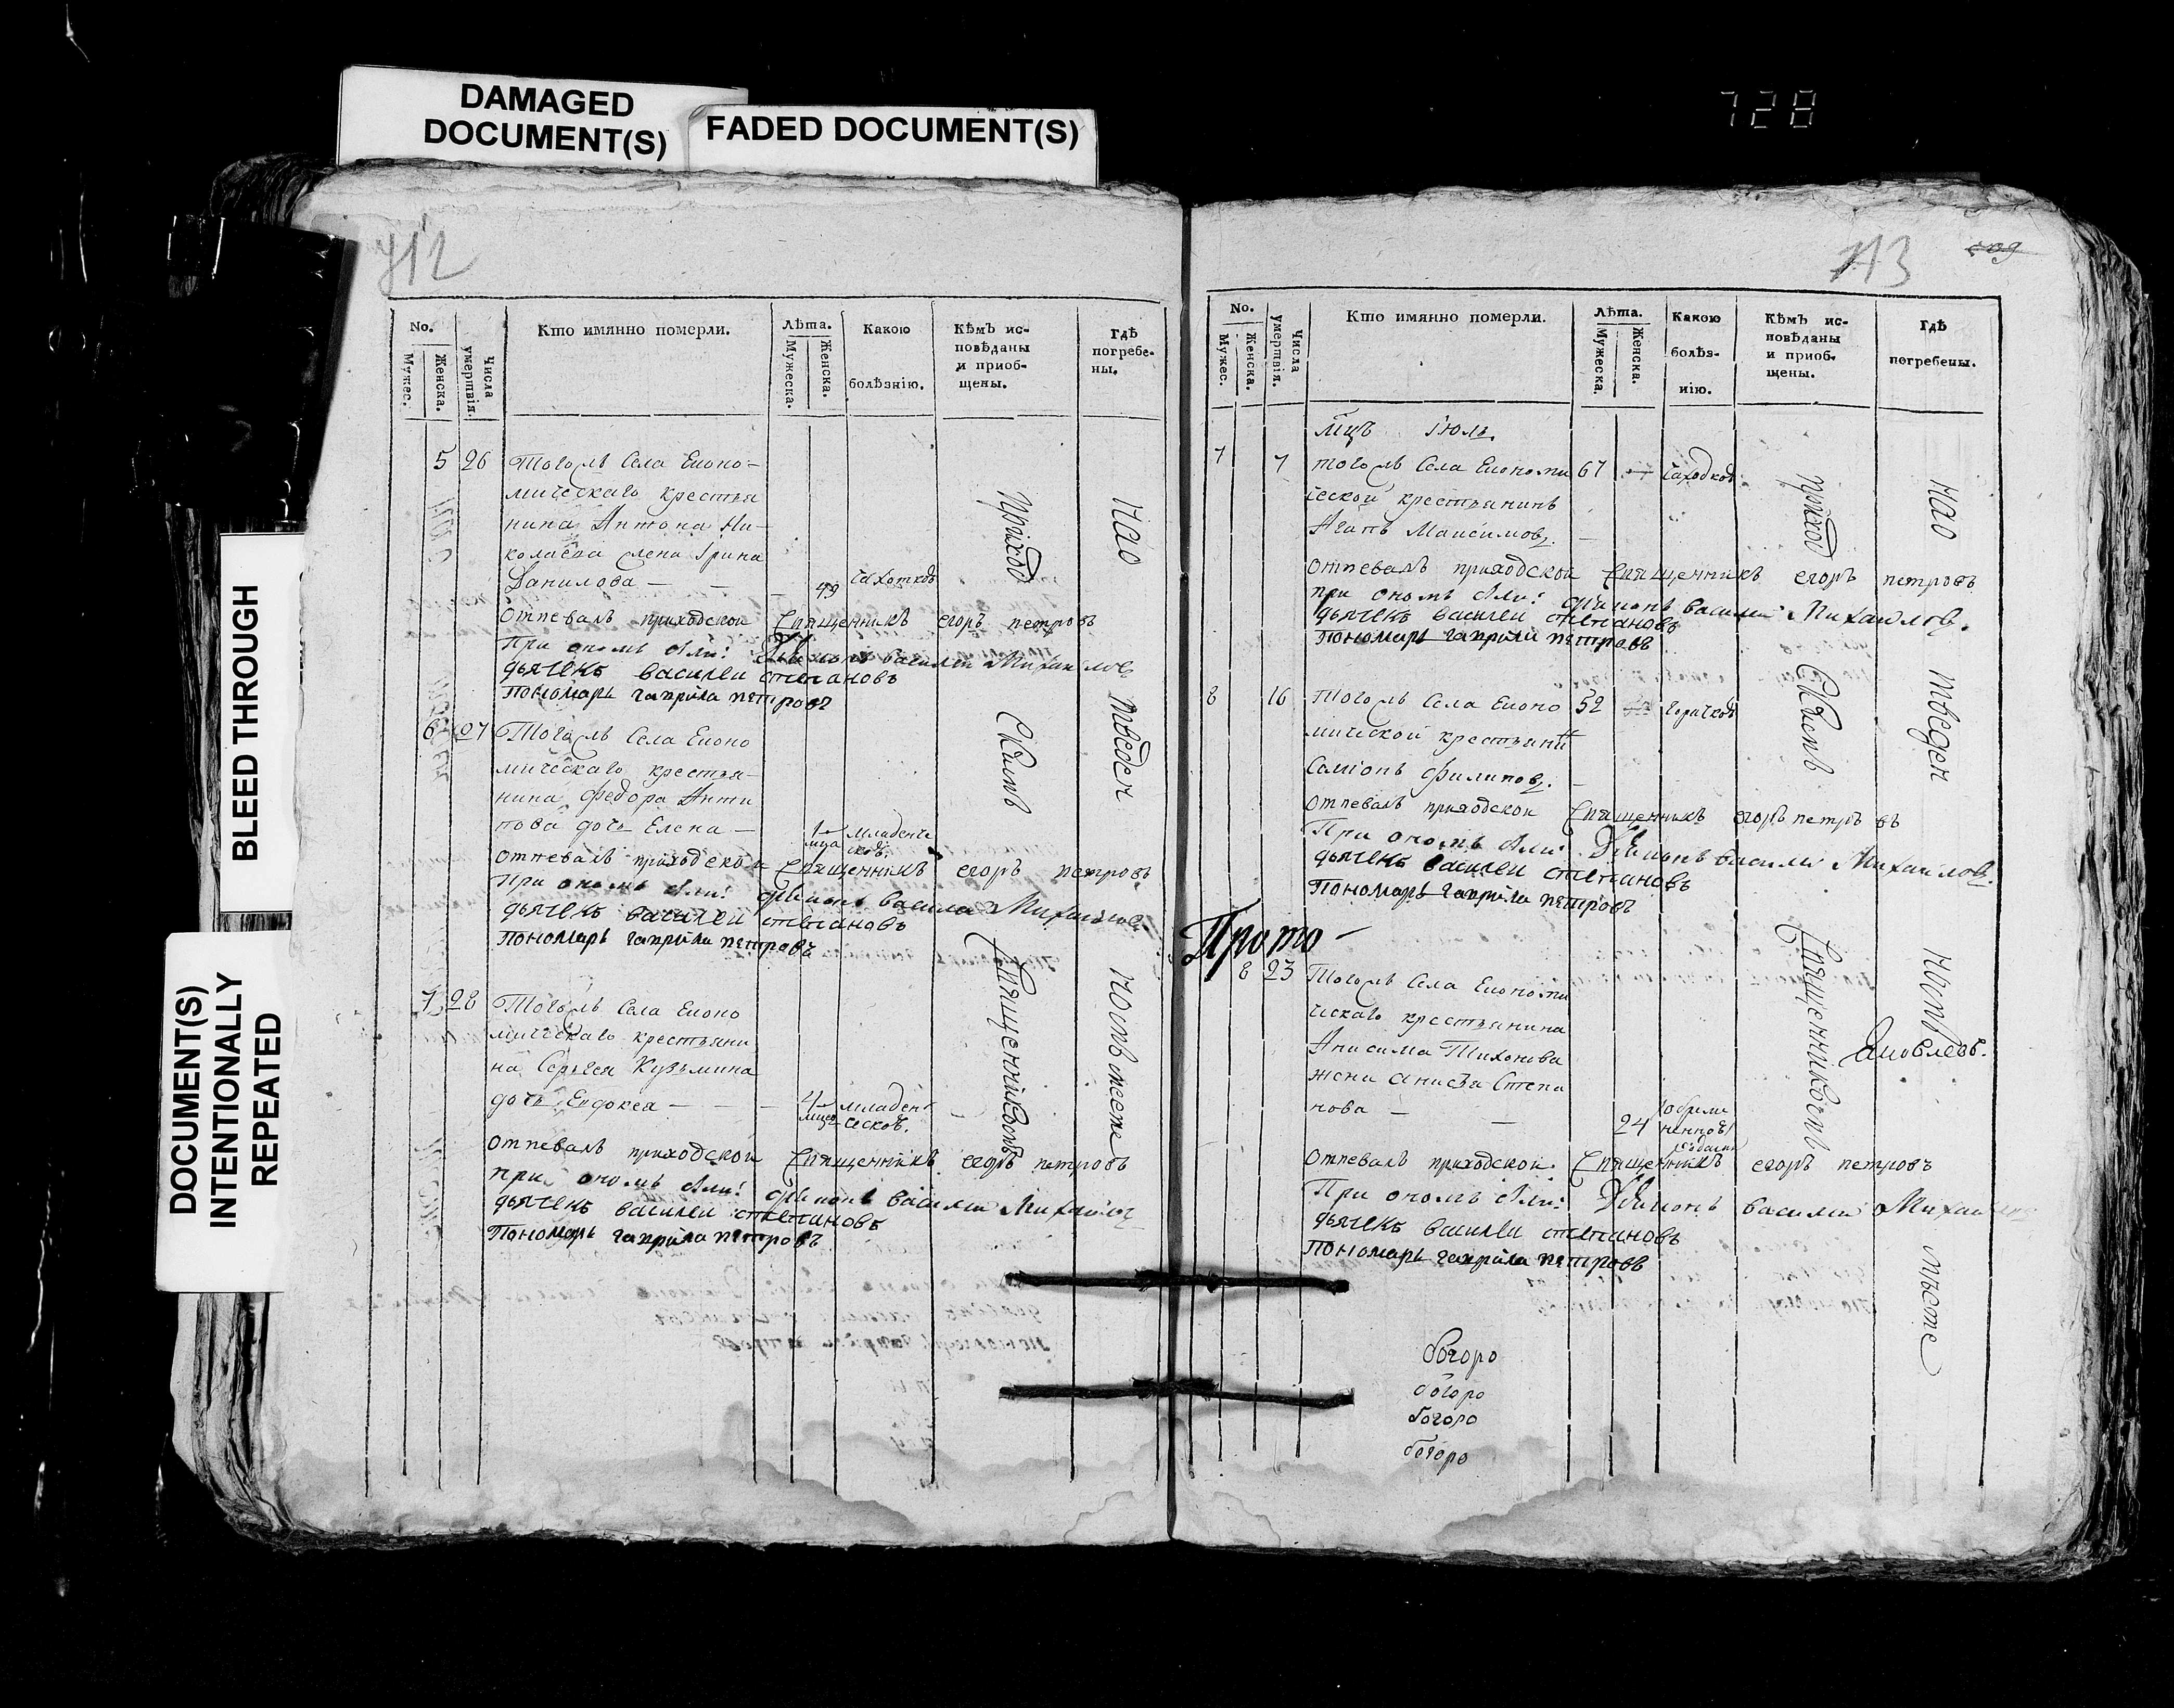 DAMAGED
DOCUMENT(S)
FADED DOCUMENT(S)
728
BLEED THROUGH
DOCUMENT(S)
INTENTIONALLY
REPEATED
712
No.
Мужес.
Женска.
Числа умертвія.
Кто имянно померли.
Лѣта.
Мужеска.
Женска.
Какою
болѣзнію.
Кѣмъ ис-
повѣданы
и приоб-
щены.
Гдѣ
погребе-
ны.
5 26 Тогожъ Села Еконо-
мическаго крестья
нина Антона Ни-
колаева жена Ірина
Данилова — — 49
отпевалъ приходской Священникъ егоръ петровъ
При ономъ были: Діаконъ василей Михайловъ
дьячекъ василеи степановъ
Пономарь гаврила петровъ
6 27 Тогожъ Села Еконо
мическаго крестья-
нина федора Анти
пова дочь Елена —
младенче
отпевалъ приходской Священникъ егоръ петровъ
При ономъ были: Діаконъ василей Михайловъ
дьячекъ василеи степановъ
Пономарь гаврила петровъ
7 28 Тогожъ Села Еконо
мическаго крестьяни
на Сергея Кузьмина
дочь Евдокея — — —
младен
ческой.
отпевалъ приходской Священникъ егоръ петровъ
при ономъ были: Діаконъ василей Михайловъ
дьячекъ василеи степановъ
Пономарь гаврила петровъ
приход
Скимъ
Священникомъ
на о
тведен
номъ месте
713
No.
Мужес.
Женска.
Числа умертвія.
Кто имянно померли.
Лѣта.
Мужеска.
Женска.
Какою
болѣз-
нію.
Кѣмъ ис-
повѣданы
и приоб-
щены.
Гдѣ
погребены.
мцъ Июль.
7 7 тогожъ Села Економи 67
ческой крестьянинъ
Агапъ Максимовъ. —
отпевалъ приходской Священникъ егоръ петровъ
при ономъ были: діаконъ василей Михайловъ.
дьячекъ василеи степановъ
Пономарь гаврила петровъ
8 16 Тогожъ Села Еконо 52 горячкой
мической крестьянинъ
Саміонъ филиповъ. —
отпевалъ приходской Священникъ егоръ петровъ
При ономъ были: Діаконъ василей Михайловъ.
дьячекъ василеи степановъ
Пономарь гаврила петровъ
Прото-
8 23 Тогожъ Села Економи
ческаго крестьянина
Анисима Тихонова
жена анисья Степа
нова — — 24
отпевалъ приходской Священникъ егоръ петровъ
При ономъ были: Діаконъ василей Михайловъ
дьячекъ василеи степановъ
Пономарь гаврила петровъ
приход
Скимъ
Священникомъ
на о
тведен
номъ
месте
Яковлевъ.
богоро
богоро
богоро
богоро